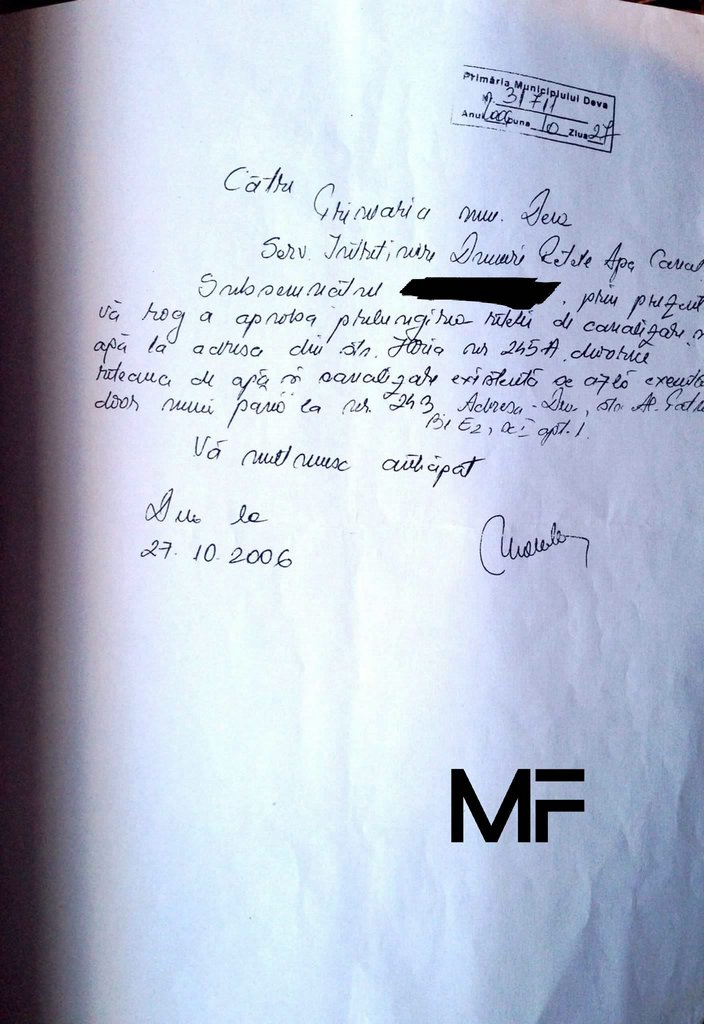 Primăria Municipiului Deva
Nr. 31711
Anul 2006 Luna 10 Ziua 27
Către
Primăria mun. Deva
Serv. Întreținere Drumuri Rețele Apă Canal
Subsemnatul , prin prezent
vă rog a aproba prelungirea rețelei de canalizare și
apă la adresa din str. Horia nr 245A, deoarece
rețeaua de apă și canalizare existentă se află
doar până la nr 243. Adresa - Deva, str. A.
Bl E2, sc I apt. 1.
Vă mulțumesc anticipat
Deva la
27. 10. 2006
MF